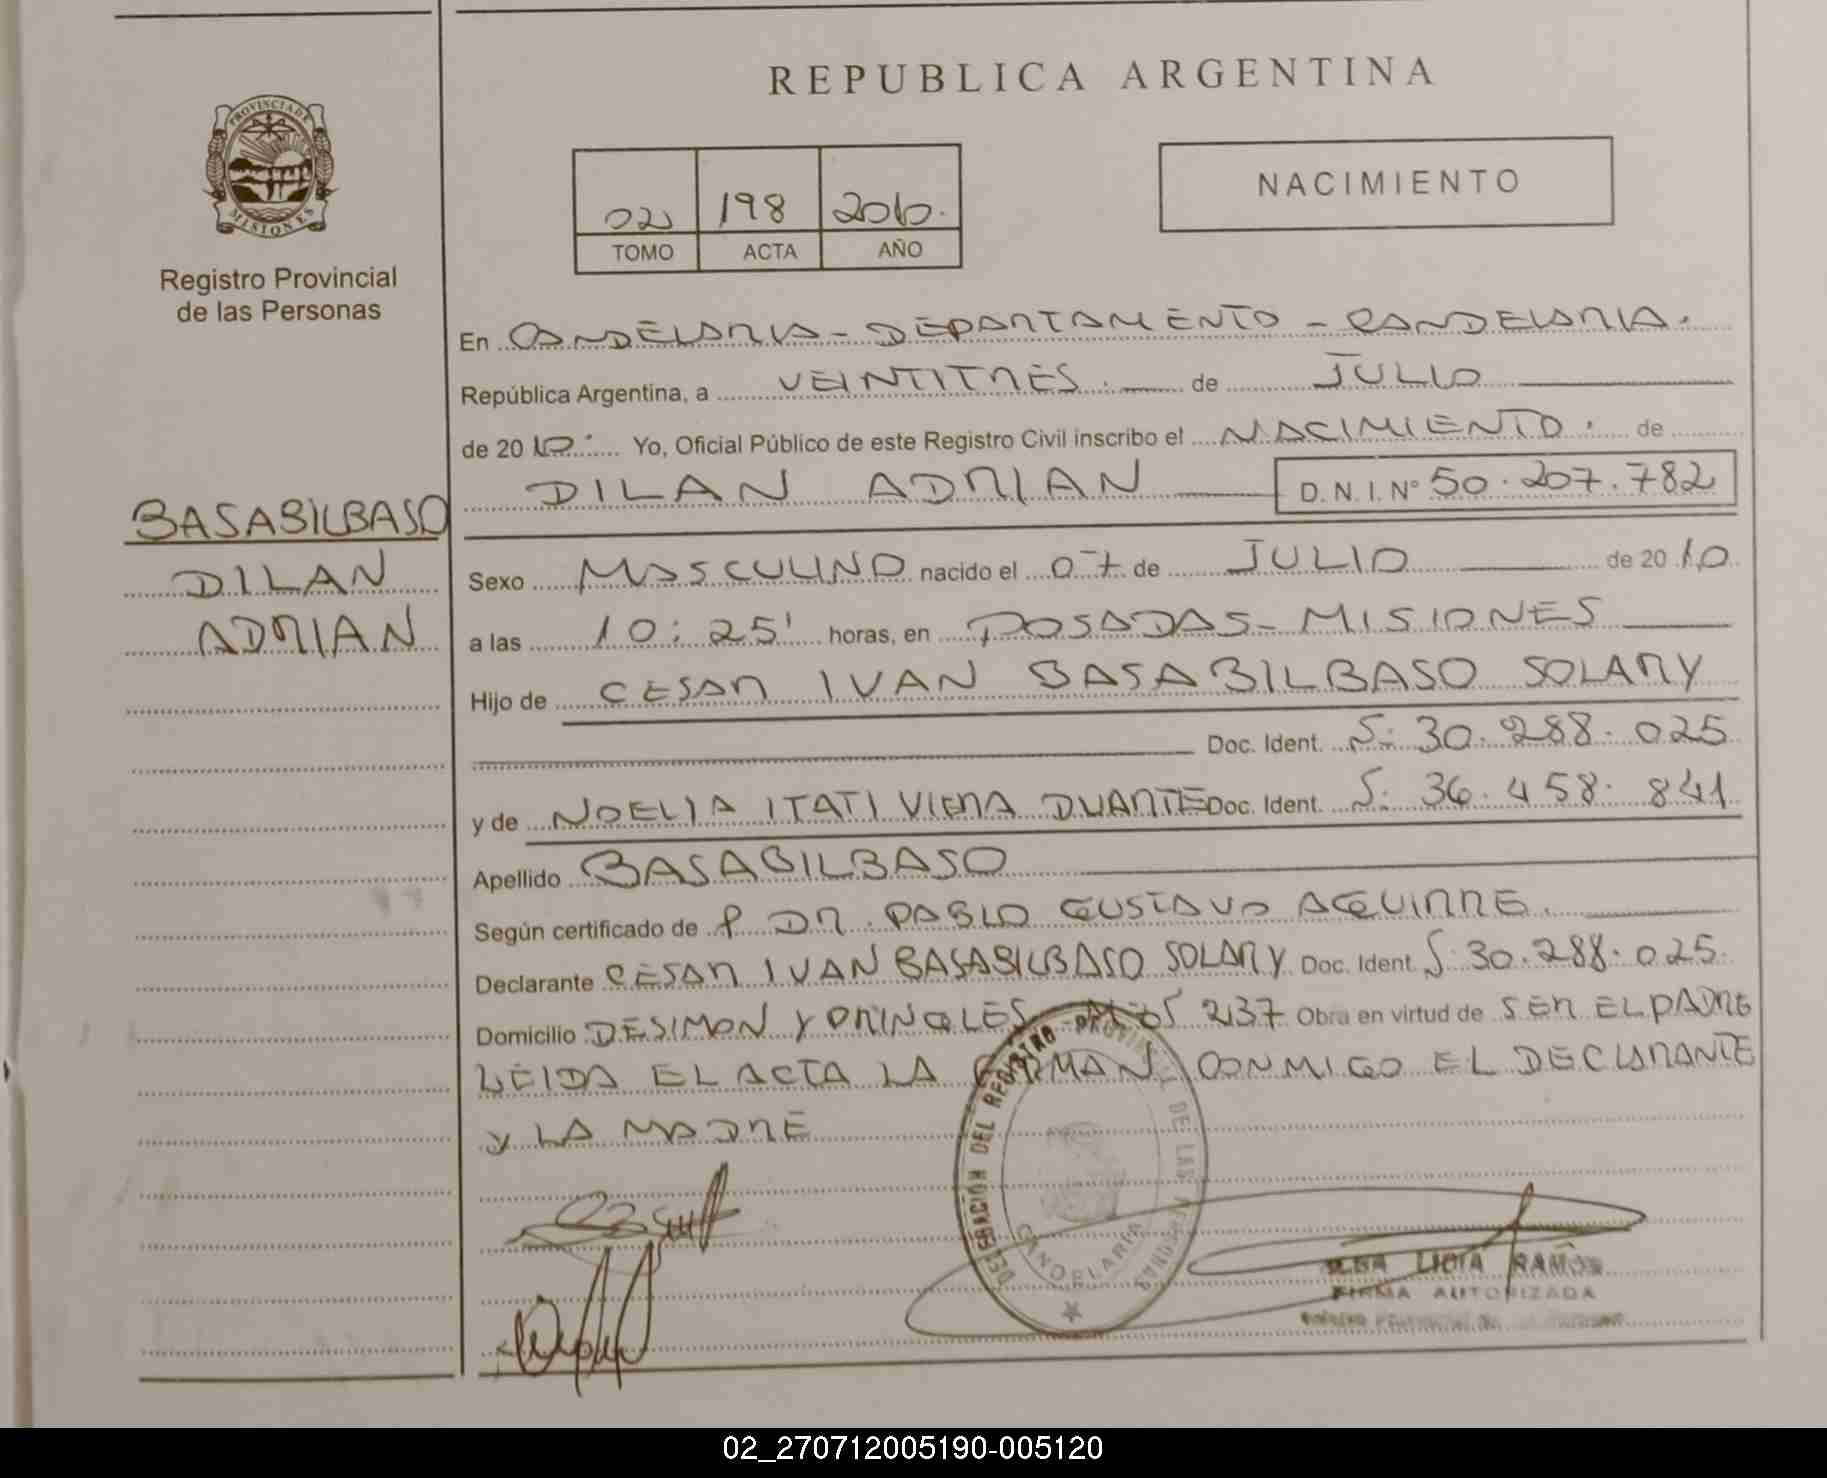 PROVINCIA DE
MISIONES
Registro Provincial
de las Personas
BASABILBASO
DILAN
ADRIAN
REPUBLICA ARGENTINA
02 198 2010.
TOMO ACTA AÑO
NACIMIENTO
En CANDELARIA - DEPARTAMENTO - CANDELARIA.
República Argentina, a VEINTITRES. de JULIO
de 2010. Yo, Oficial Público de este Registro Civil inscribo el NACIMIENTO. de
DILAN ADRIAN D.N.I. N° 50.207.782
Sexo MASCULINO nacido el 07 de JULIO de 2010
a las 10:25' horas, en POSADAS - MISIONES
Hijo de CESAR IVAN BASABILBASO SOLARY
Doc. Ident. S: 30.288.025
y de NOELIA ITATI VIERA DUARTE Doc. Ident. S: 36.458.841
Apellido BASABILBASO
Según certificado de P DR. PABLO GUSTAVO AGUIRRE.
Declarante CESAR IVAN BASABILBASO SOLARY Doc. Ident. S: 30.288.025.
Domicilio DESIMON Y PRINGLES 237 Obra en virtud de SER EL PADRE
LEIDA EL ACTA LA FIRMAN CONMIGO EL DECLARANTE
Y LA MADRE
DELEGACIÓN DEL REGISTRO PROVINCIAL DE LAS PERSONAS
CANDELARIA
LIDIA RAMOS
FIRMA AUTORIZADA
02_270712005190-005120